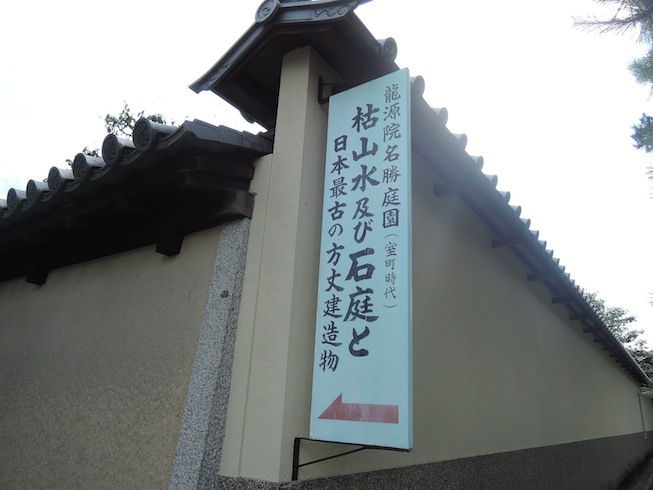 龍源院名勝庭園（室町時代）
枯山水及び石庭と
日本最古の方丈建造物